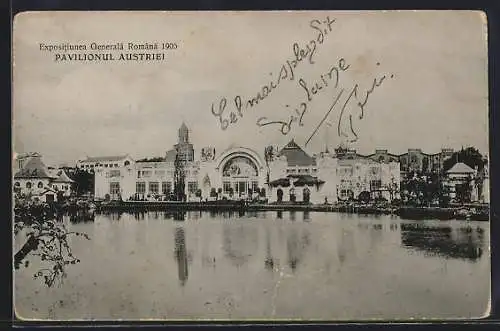 Expoziţiunea Generală Română 1905
PAVILIONUL AUSTRIEI
Cel mai splendit